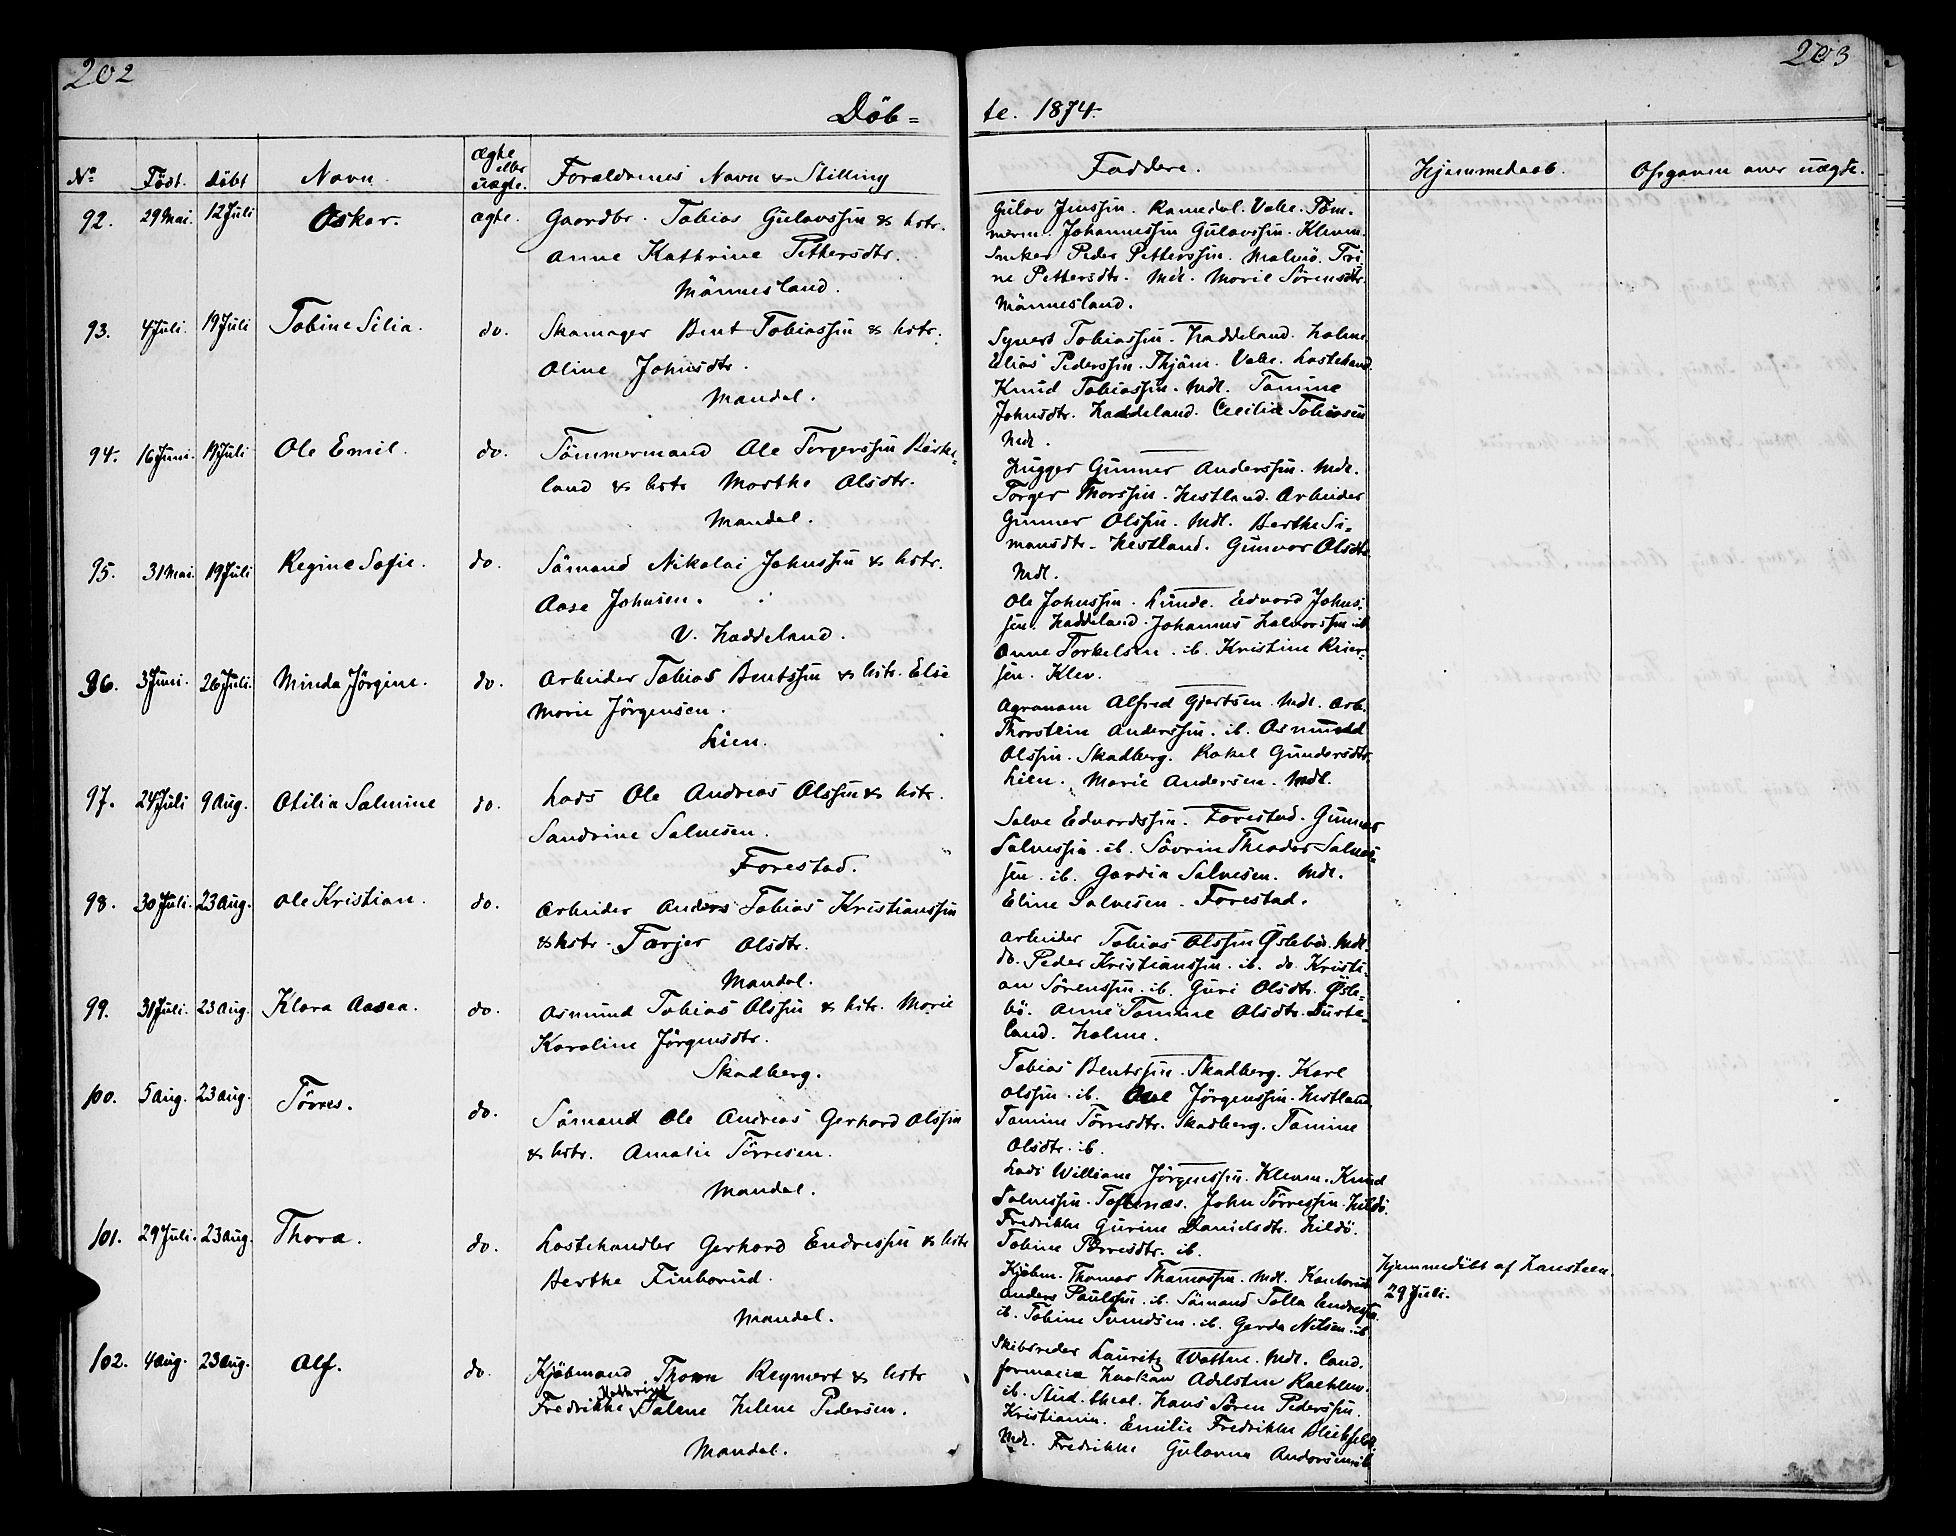 202
203
Döb=
te. 1874.
No
Födt.
döbt
Navn.
ægte
eller
uægte.
Foraldrenes Navn & Stilling
Faddere.
Hjemmedaab.
92.
29 Mai.
12 Juli
Oskar.
ægte.
Gaardbr. Tobias Gulavssen & hstr.
Anne Kathrine Pettersdtr.
Männesland.
Gulav Jenssen. Ramedal. Valle. Töm-
merm. Johannessen Gulavssen. Klevn.
Sneker Peder Petterssen. Malmö. Tri-
ne Pettersdtr. Mdl. Marie Sörensdtr.
Männesland.
93.
4 Juli.
19 Juli
Tobine Silia.
do.
Skomager Bent Tobiassen & hstr.
Oline Johnsdtr.
Mandal.
Syvert Tobiassen. Haddeland. Holme.
Elias Pederssen. Valle.
Knud Tobiassen. Mdl. Tomine
Johnsdtr. Haddeland. Cecilia Tobiasen
Mdl.
94.
16 Juni.
19 Juli
Ole Emil.
do.
Tömmermand Ole Torgerssen Birke-
land & hstr Marthe Olsdtr.
Mandal.
Hugger Gunner Anderssen. Mdl.
Torger Thorssen. Hestland. Arbeider
Gunner Olssen. Mdl. Berthe Si-
monsdtr. Hestland. Gunvor Olsdtr.
Mdl.
95.
31 Mai.
19 Juli
Regine Sofie.
do.
Sömand Nikolai Johnssen & hstr.
Aase Johnsen.
V. Haddeland.
Ole Johnssen. Lunde. Edvard Johns-
sen. Haddeland. Johannes Halvorssen. ib
Anne Torkelsen. ib. Kristine Reier-
sen. Klev.
96.
3 Juni.
26 Juli.
Minda Jörgine.
do.
Arbeider Tobias Bentssen & hstr. Else
Marie Jörgensen.
Lien.
Agronom Alfred Gjertsen. Mdl. Arb.
Thorstein Anderssen. ib. Asmund
Olssen. Skadberg. Rakel Gundersdtr.
Lien. Marie Andersen. Mdl.
97.
24 Juli
9 Aug.
Otilia Salmine
do.
Lods Ole Andreas Olssen & hstr.
Sandrine Salvesen.
Forestad.
Salve Edvardssen. Forestad. Gunner
Salvessen. ib. Sövrin Theodor Salves-
sen. ib. Gardia Salvesen. Mdl.
Eline Salvesen. Forestad.
98.
30 Juli.
23 Aug.
Ole Kristian.
do.
Arbeider Anders Tobias Kristianssen
& hstr. Tarjer Olsdtr.
Mandal.
Arbeider Tobias Olssen Öslebö. Mdl.
do. Peder Kristianssen. ib. do. Kristi-
an Sörenssen. ib. Guri Olsdtr. Ösle-
bö. Anne Tomine Olsdtr.
land. Holme.
99.
31 Juli.
23 Aug.
Klara Aasea.
do.
Asmund Tobias Olssen & hstr. Marie
Karoline Jörgensdtr.
Skadberg.
Tobias Bentssen. Skadberg. Karl
Olssen. ib. Jörgenssen. Hestland
Tomine Törresdtr. Skadberg. Tomine
Olsdtr. ib.
100.
5 Aug.
23 Aug.
Törres.
do.
Sömand Ole Andreas Gerhard Olssen
& hstr. Amalie Törresen.
Mandal.
Lods William Jörgenssen. Kleven. Knud
Salvessen. Toftenæs. John Törressen. Hildö.
Fredrikke Gurine Danielsdtr. Hildö.
Tobine Törresdtr. ib.
101.
29 Juli.
23 Aug.
Thora.
do.
Lostehandler Gerhard Endressen & hstr
Berthe Finborud.
Mandal.
Kjöbm. Thomas Thomassen. Mdl. Kontorist
Anders Paulssen. ib. Sömand Tolla Endressen.
ib. Tobine Svendsen. ib. Gerda Nilsen. ib
Hjemmedöbt af Hansteen.
29 Juli.
102.
4 Aug.
23 Aug.
Alf.
do.
Kjöbmand Thorn Reymert & hstr
Kathrine
Fredrikke Talene Helene Pedersen.
Mandal.
Skibsreder Lauritz Wattne. Mdl. Cand.
farmacia Haakon Adelsten
ib. Stud. theol. Hans Sören Pederssen.
Kristiania. Emilie Fredrikke
Mdl. Fredrikke Gulovna Andorsen ib